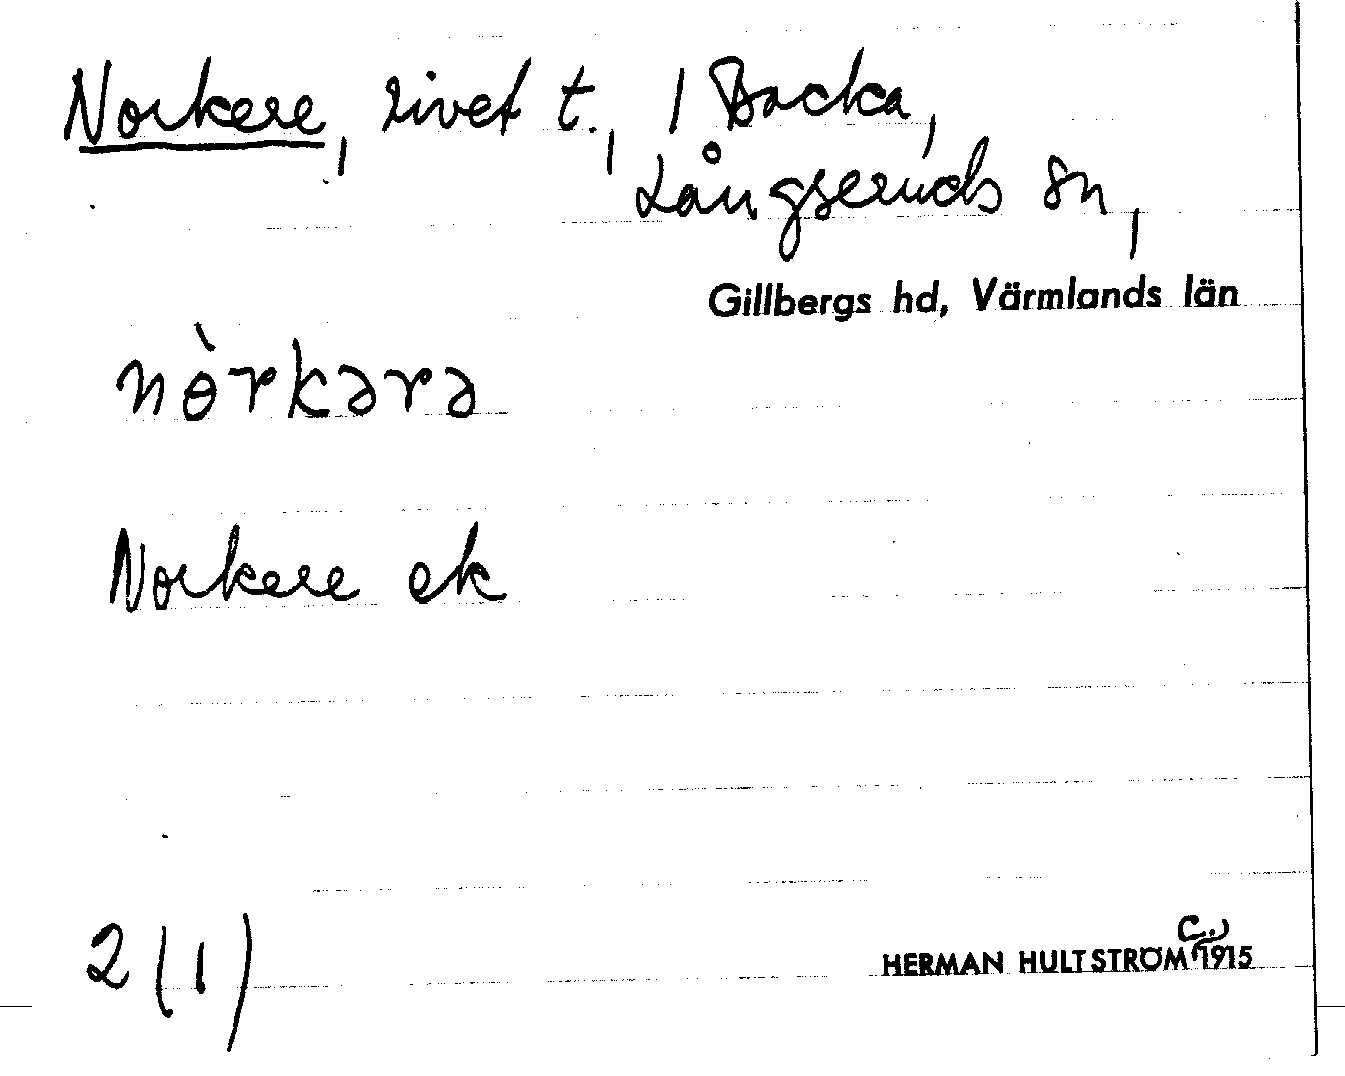 Norkere, rivet t., 1 Backa,
Långseruds sn,
Gillbergs hd, Värmlands län
nɵ̀rkərə
Norkere ek
2 (1)
HERMAN HULTSTRÖM c. 1915